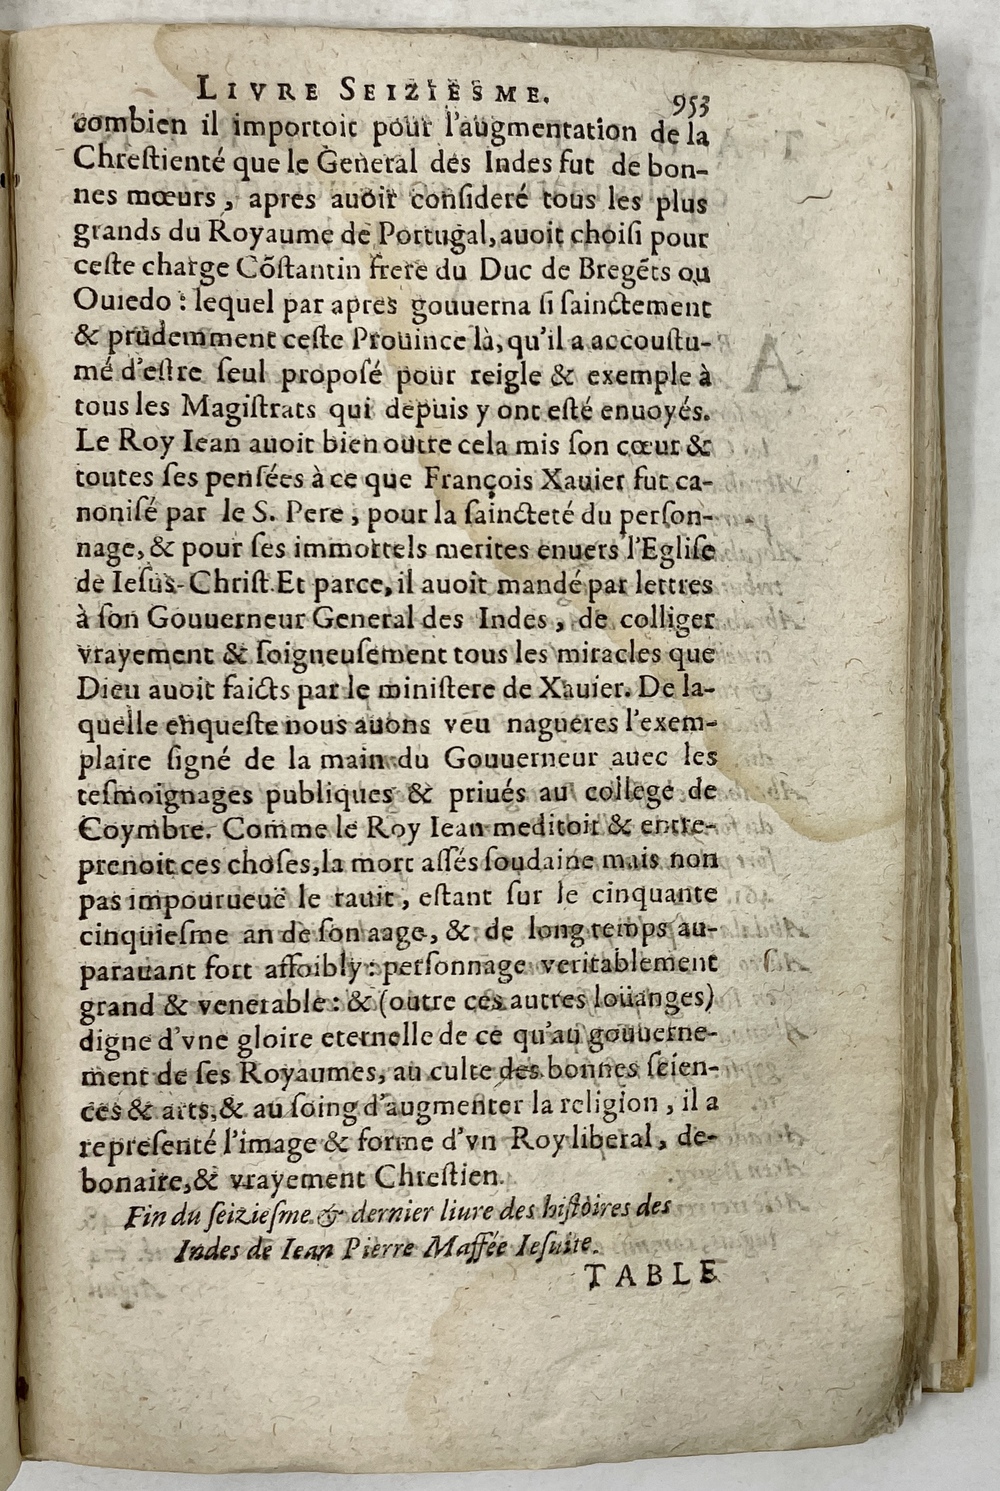 LIVRE SEIZIESME.
953
combien il importoit pour l'augmentation de la
Chreſtienté que le General des Indes fut de bon-
nes mœurs, apres auoir conſideré tous les plus
grands du Royaume de Portugal, auoit choiſi pour
ceſte charge Cõſtantin frere du Duc de Bregẽts ou
Ouiedo : lequel par apres gouuerna ſi ſainctement
& prudemment ceſte Prouince là, qu'il a accouſtu-
mé d'eſtre ſeul propoſé pour reigle & exemple à
tous les Magiſtrats qui depuis y ont eſté enuoyés.
Le Roy Iean auoit bien outre cela mis ſon cœur &
toutes ſes penſées à ce que François Xauier fut ca-
noniſé par le S. Pere, pour la ſaincteté du perſon-
nage, & pour ſes immortels merites enuers l'Egliſe
de Ieſus-Chriſt. Et parce, il auoit mandé par lettres
à ſon Gouuerneur General des Indes, de colliger
vrayement & ſoigneuſement tous les miracles que
Dieu auoit faicts par le miniſtere de Xauier. De la-
quelle enqueſte nous auons veu nagueres l'exem-
plaire ſigné de la main du Gouuerneur auec les
teſmoignages publiques & priués au college de
Coymbre. Comme le Roy Iean meditoit & entre-
prenoit ces choſes, la mort aſſés ſoudaine mais non
pas impourueuë le rauit, eſtant ſur le cinquante
cinquieſme an de ſon aage, & de long temps au-
parauant fort affoibly : perſonnage veritablement
grand & venerable : & (outre ces autres loüanges)
digne d'vne gloire eternelle de ce qu'au gouuerne-
ment de ſes Royaumes, au culte des bonnes ſcien-
ces & arts, & au ſoing d'augmenter la religion, il a
repreſenté l'image & forme d'vn Roy liberal, de-
bonaire, & vrayement Chreſtien.
Fin du ſeizieſme & dernier liure des hiſtoires des
Indes de Iean Pierre Maffée Ieſuite.
TABLE